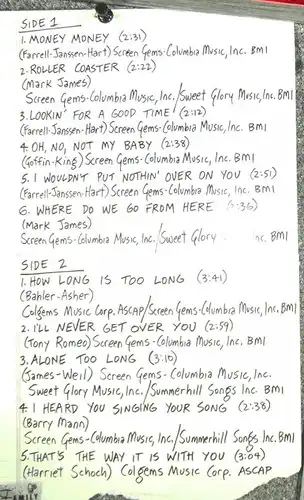 SIDE 1
1. MONEY MONEY (2:31)
(Farrell-Janssen-Hart) Screen Gems-Columbia Music, Inc. BMI
2. ROLLER COASTER (2:22)
(Mark James)
Screen Gems-Columbia Music, Inc./Sweet Glory Music, Inc. BMI
3. LOOKIN' FOR A GOOD TIME (2:12)
(Farrell-Janssen-Hart) Screen Gems-Columbia Music, Inc. BMI
4. OH, NO, NOT MY BABY (2:38)
(Goffin-King) Screen Gems-Columbia Music, Inc. BMI
5. I WOULDN'T PUT NOTHIN' OVER ON YOU (2:51)
(Farrell-Janssen-Hart) Screen Gems-Columbia Music, Inc. BMI
6. WHERE DO WE GO FROM HERE (:36)
(Mark James)
Screen Gems-Columbia Music, Inc./Sweet Glory Inc. BMI
SIDE 2
1. HOW LONG IS TOO LONG (3:41)
(Bahler-Asher)
Colgems Music Corp. ASCAP/Screen Gems-Columbia Music, Inc. BMI
2. I'LL NEVER GET OVER YOU (2:59)
(Tony Romeo) Screen Gems-Columbia Music, Inc. BMI
3. ALONE TOO LONG (3:10)
(James-Weil) Screen Gems-Columbia Music, Inc.
Sweet Glory Music, Inc./Summerhill Songs Inc. BMI
4. I HEARD YOU SINGING YOUR SONG (2:38)
(Barry Mann)
Screen Gems-Columbia Music, Inc./Summerhill Songs Inc. BMI
5. THAT'S THE WAY IT IS WITH YOU (3:04)
(Harriet Schoch) Colgems Music Corp. ASCAP